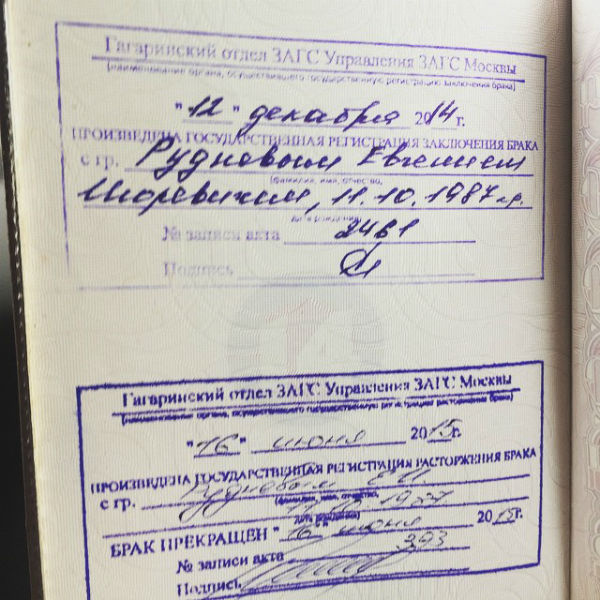 Гагаринский отдел ЗАГС Управления ЗАГС Москвы
(наименование органа, осуществившего государственную регистрацию заключения брака)
"12" декабря 2014г.
ПРОИЗВЕДЕНА ГОСУДАРСТВЕННАЯ РЕГИСТРАЦИЯ ЗАКЛЮЧЕНИЯ БРАКА
с гр. Рудневым Евгением
(фамилия, имя, отчество,
Игоревичем, 11.10.1987 г.р.
дата рождения)
№ записи акта 3461
Подпись
Гагаринский отдел ЗАГС Управления ЗАГС Москвы
(наименование органа, осуществившего государственную регистрацию расторжения брака)
"16" июня 2015г.
ПРОИЗВЕДЕНА ГОСУДАРСТВЕННАЯ РЕГИСТРАЦИЯ РАСТОРЖЕНИЯ БРАКА
с гр. Рудневым Е.И.
(фамилия, имя, отчество,
1987
дата рождения)
БРАК ПРЕКРАЩЕН "16" июня 2015г.
№ записи акта 393
Подпись